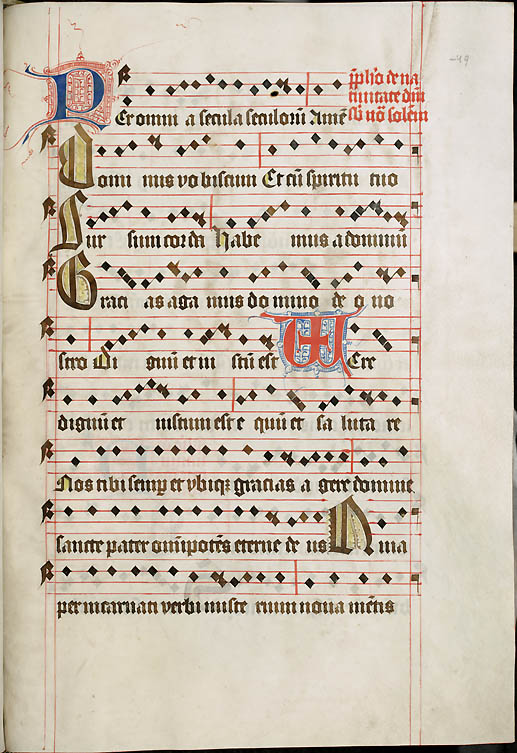 49
p̄p̄h̄o de na
tiuitate dn̄i
Per omni a secula seculorū Amē
nō solēm
Domi nus vo biscum Et cū spiritu tuo
Sur sum cor da Habe mus a dominū
Graci as aga mus do mino de o no
stro Di gnū et iu stū est Uere
dignū et iustum est e quū et sa luta re
Nos tibi semp et vbiqz gracias a gere domine
sancte pater om̄ipotēs eterne de us Quia
per incarnati verbi miste rium noua mētis